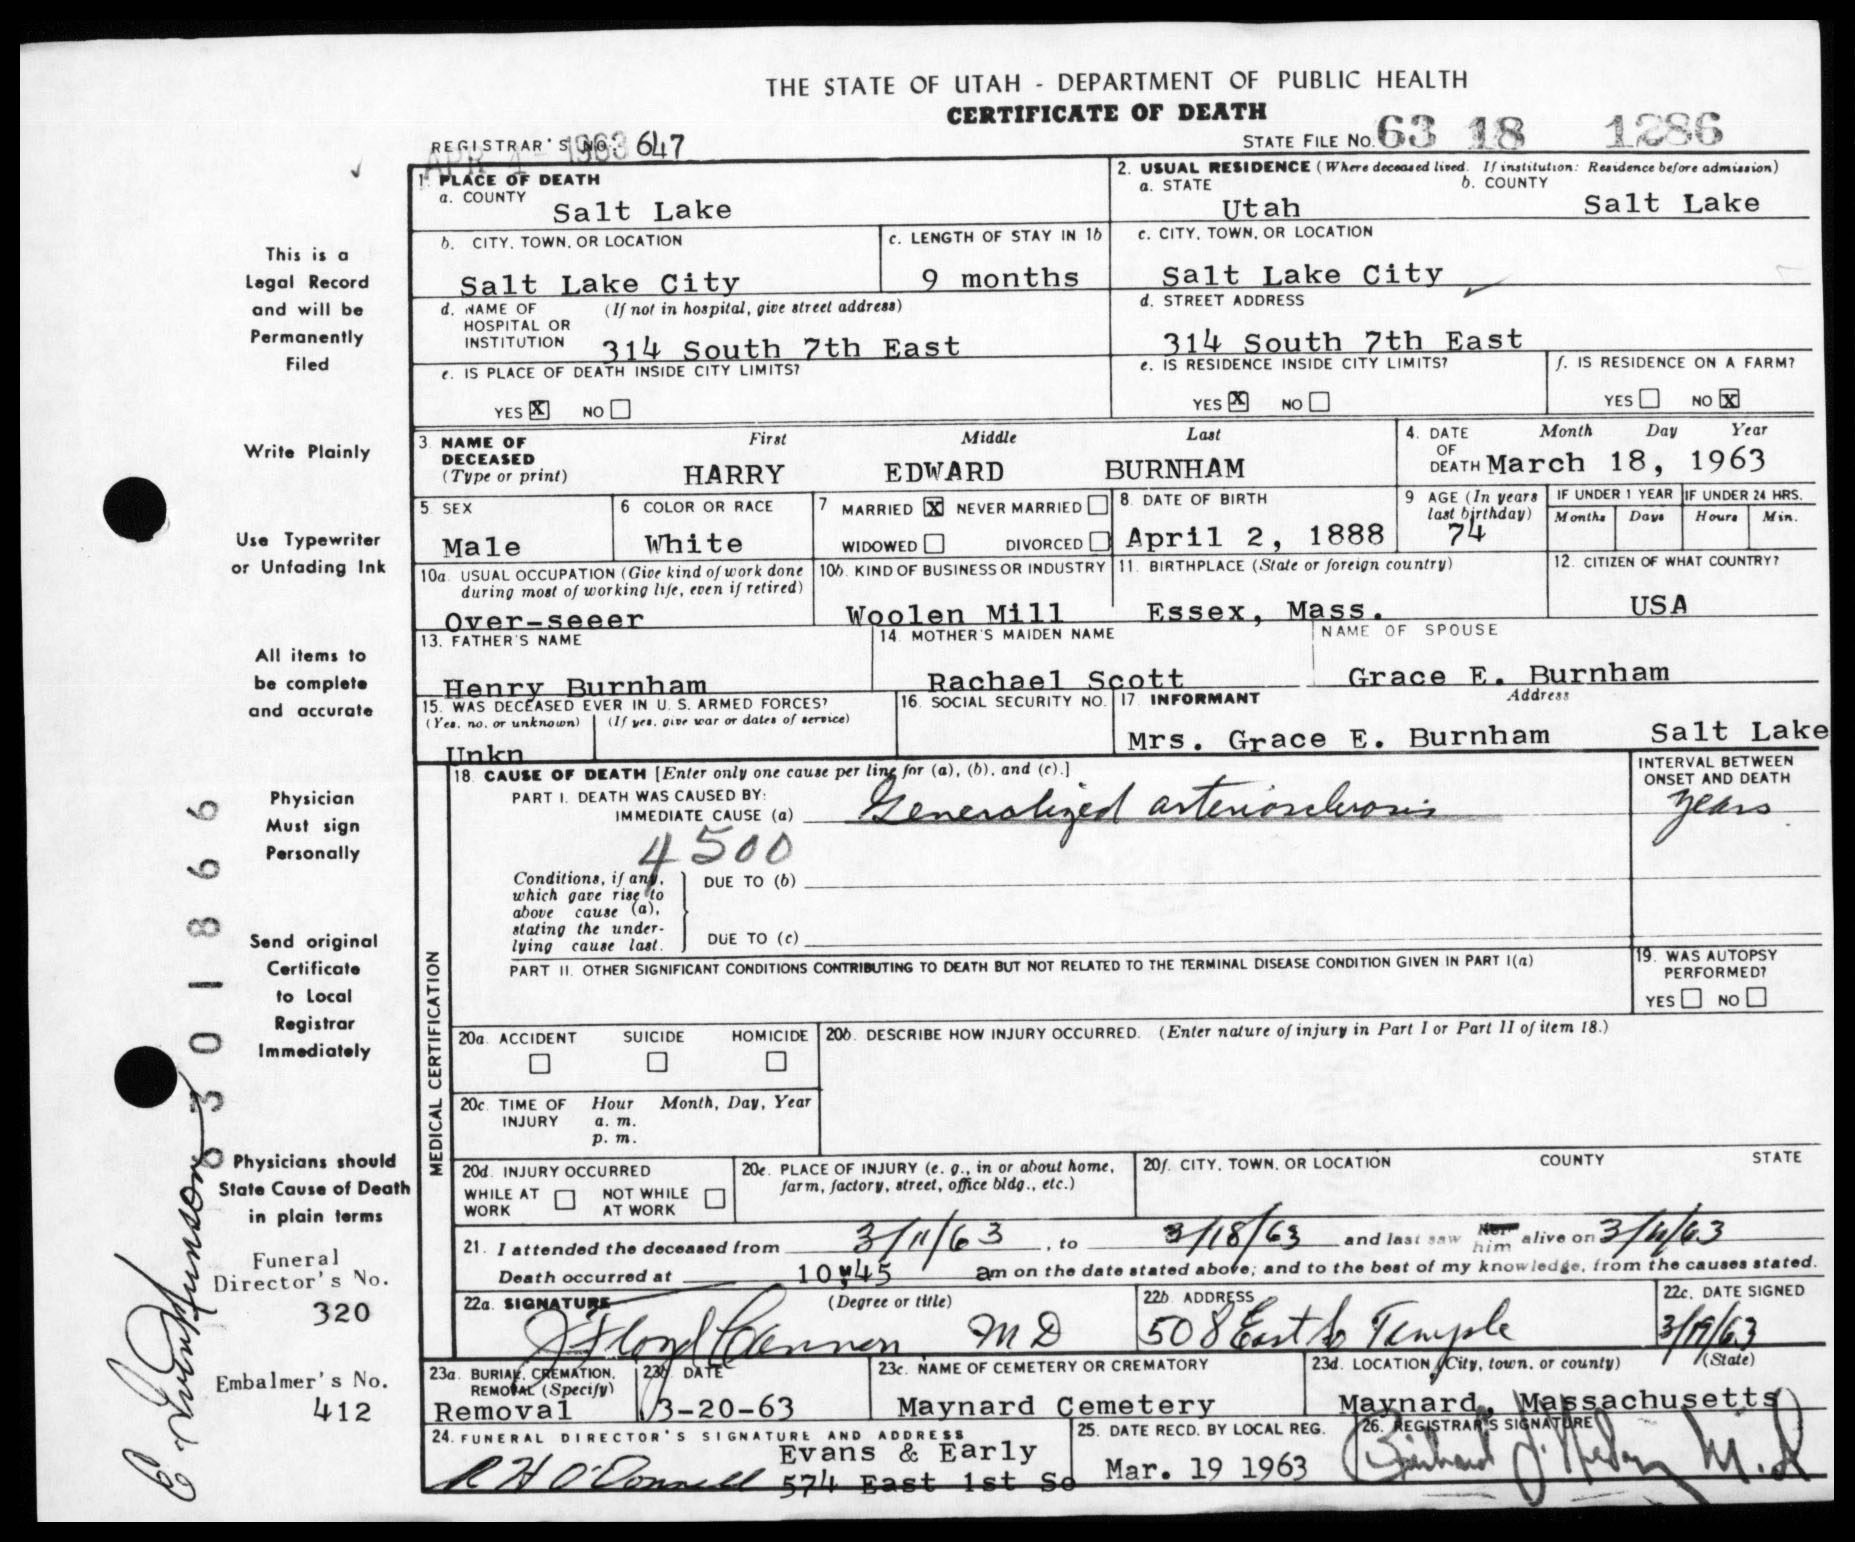 THE STATE OF UTAH - DEPARTMENT OF PUBLIC HEALTH
CERTIFICATE OF DEATH
REGISTRAR'S NO. 647
APR 4 - 1963
STATE FILE NO. 63 18 1286
1. PLACE OF DEATH
a. COUNTY
Salt Lake
2. USUAL RESIDENCE (Where deceased lived. If institution: Residence before admission)
a. STATE b. COUNTY
Utah Salt Lake
b. CITY, TOWN, OR LOCATION
Salt Lake City
c. LENGTH OF STAY IN 1b
9 months
c. CITY, TOWN, OR LOCATION
Salt Lake City
d. NAME OF HOSPITAL OR INSTITUTION (If not in hospital, give street address)
314 South 7th East
d. STREET ADDRESS
314 South 7th East
e. IS PLACE OF DEATH INSIDE CITY LIMITS?
YES X NO
e. IS RESIDENCE INSIDE CITY LIMITS?
YES X NO
f. IS RESIDENCE ON A FARM?
YES NO X
3. NAME OF DECEASED (Type or print)
First Middle Last
HARRY EDWARD BURNHAM
4. DATE OF DEATH
Month Day Year
March 18, 1963
5. SEX
Male
6 COLOR OR RACE
White
7 MARRIED X NEVER MARRIED
WIDOWED DIVORCED
8. DATE OF BIRTH
April 2, 1888
9 AGE (In years last birthday)
74
IF UNDER 1 YEAR
Months Days
IF UNDER 24 HRS.
Hours Min.
10a. USUAL OCCUPATION (Give kind of work done during most of working life, even if retired)
Over-seeer
10b. KIND OF BUSINESS OR INDUSTRY
Woolen Mill
11. BIRTHPLACE (State or foreign country)
Essex, Mass.
12. CITIZEN OF WHAT COUNTRY?
USA
13. FATHER'S NAME
Henry Burnham
14. MOTHER'S MAIDEN NAME
Rachael Scott
NAME OF SPOUSE
Grace E. Burnham
15. WAS DECEASED EVER IN U.S. ARMED FORCES?
(Yes, no, or unknown) (If yes, give war or dates of service)
Unkn
16. SOCIAL SECURITY NO.
17 INFORMANT Address
Mrs. Grace E. Burnham Salt Lake
MEDICAL CERTIFICATION
18. CAUSE OF DEATH [Enter only one cause per line for (a), (b), and (c).]
PART I. DEATH WAS CAUSED BY:
IMMEDIATE CAUSE (a) Generalized arteriosclerosis
INTERVAL BETWEEN ONSET AND DEATH
years
4500
Conditions, if any, which gave rise to above cause (a), stating the underlying cause last.
DUE TO (b)
DUE TO (c)
PART II. OTHER SIGNIFICANT CONDITIONS CONTRIBUTING TO DEATH BUT NOT RELATED TO THE TERMINAL DISEASE CONDITION GIVEN IN PART I(a)
19. WAS AUTOPSY PERFORMED?
YES NO
20a. ACCIDENT SUICIDE HOMICIDE
20b. DESCRIBE HOW INJURY OCCURRED. (Enter nature of injury in Part I or Part II of item 18.)
20c. TIME OF INJURY Hour Month, Day, Year
a. m.
p. m.
20d. INJURY OCCURRED
WHILE AT WORK NOT WHILE AT WORK
20e. PLACE OF INJURY (e. g., in or about home, farm, factory, street, office bldg., etc.)
20f. CITY, TOWN, OR LOCATION COUNTY STATE
21. I attended the deceased from 3/11/63, to 3/18/63 and last saw her him alive on
Death occurred at 10:45 am on the date stated above; and to the best of my knowledge, from the causes stated.
22a. SIGNATURE (Degree or title)
J. Floyd Cannon MD
22b. ADDRESS
508 East So Temple
22c. DATE SIGNED
3/19/63
23a. BURIAL, CREMATION, REMOVAL (Specify)
Removal
23b. DATE
3-20-63
23c. NAME OF CEMETERY OR CREMATORY
Maynard Cemetery
23d. LOCATION (City, town, or county) (State)
Maynard, Massachusetts
24. FUNERAL DIRECTOR'S SIGNATURE AND ADDRESS
R H O'Donnell
Evans & Early
574 East 1st So
25. DATE RECD. BY LOCAL REG.
Mar. 19 1963
26. REGISTRAR'S SIGNATURE
M.D
This is a
Legal Record
and will be
Permanently
Filed
Write Plainly
Use Typewriter
or Unfading Ink
All items to
be complete
and accurate
Physician
Must sign
Personally
Send original
Certificate
to Local
Registrar
Immediately
Physicians should
State Cause of Death
in plain terms
Funeral
Director's No.
320
Embalmer's No.
412
6301866